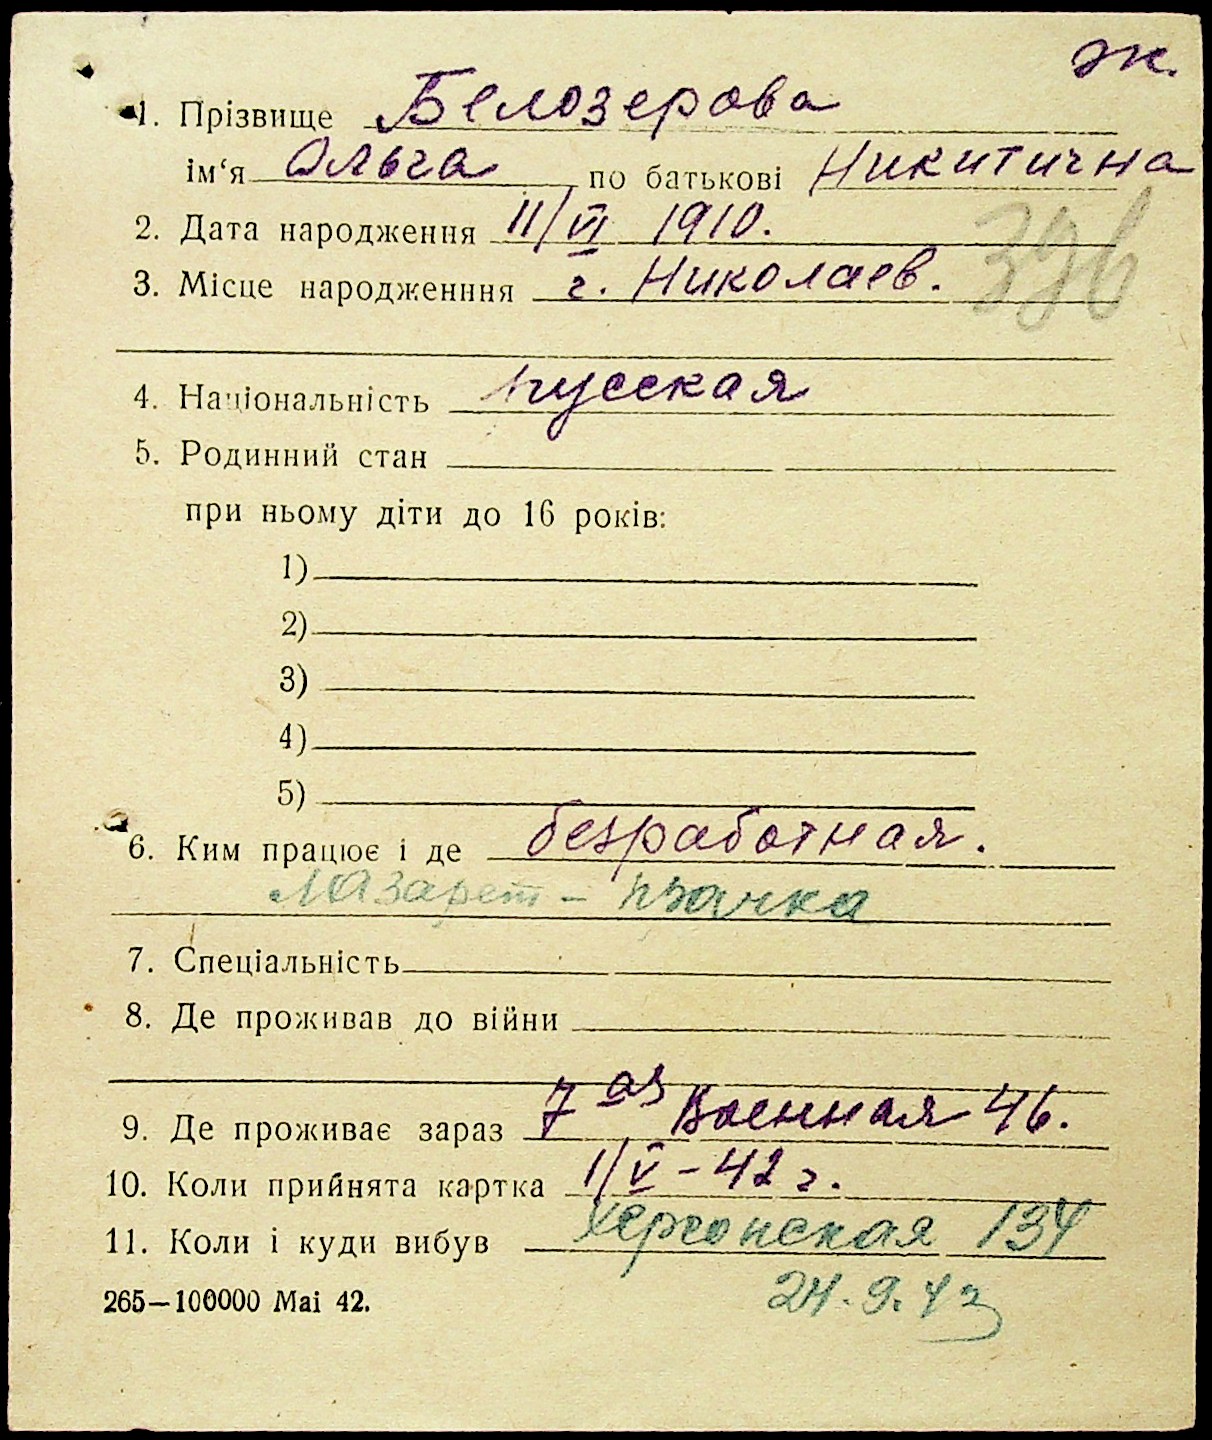 ж.
1. Прізвище Белозерова
ім‘я Ольга по батькові Никитична
2. Дата народження 11/VI 1910.
3. Місце народженння г. Николаев.
4. Національність русская
5. Родинний стан
при ньому діти до 16 років:
1)
2)
3)
4)
5)
6. Ким працює і де безработная.
Лазарет – прачка
7. Спеціальність
8. Де проживав до війни
9. Де проживає зараз 7 ая Военная 46.
10. Коли прийнята картка 1/V – 42 г.
11. Коли і куди вибув Херсонская 134
265—100000 Mai 42.